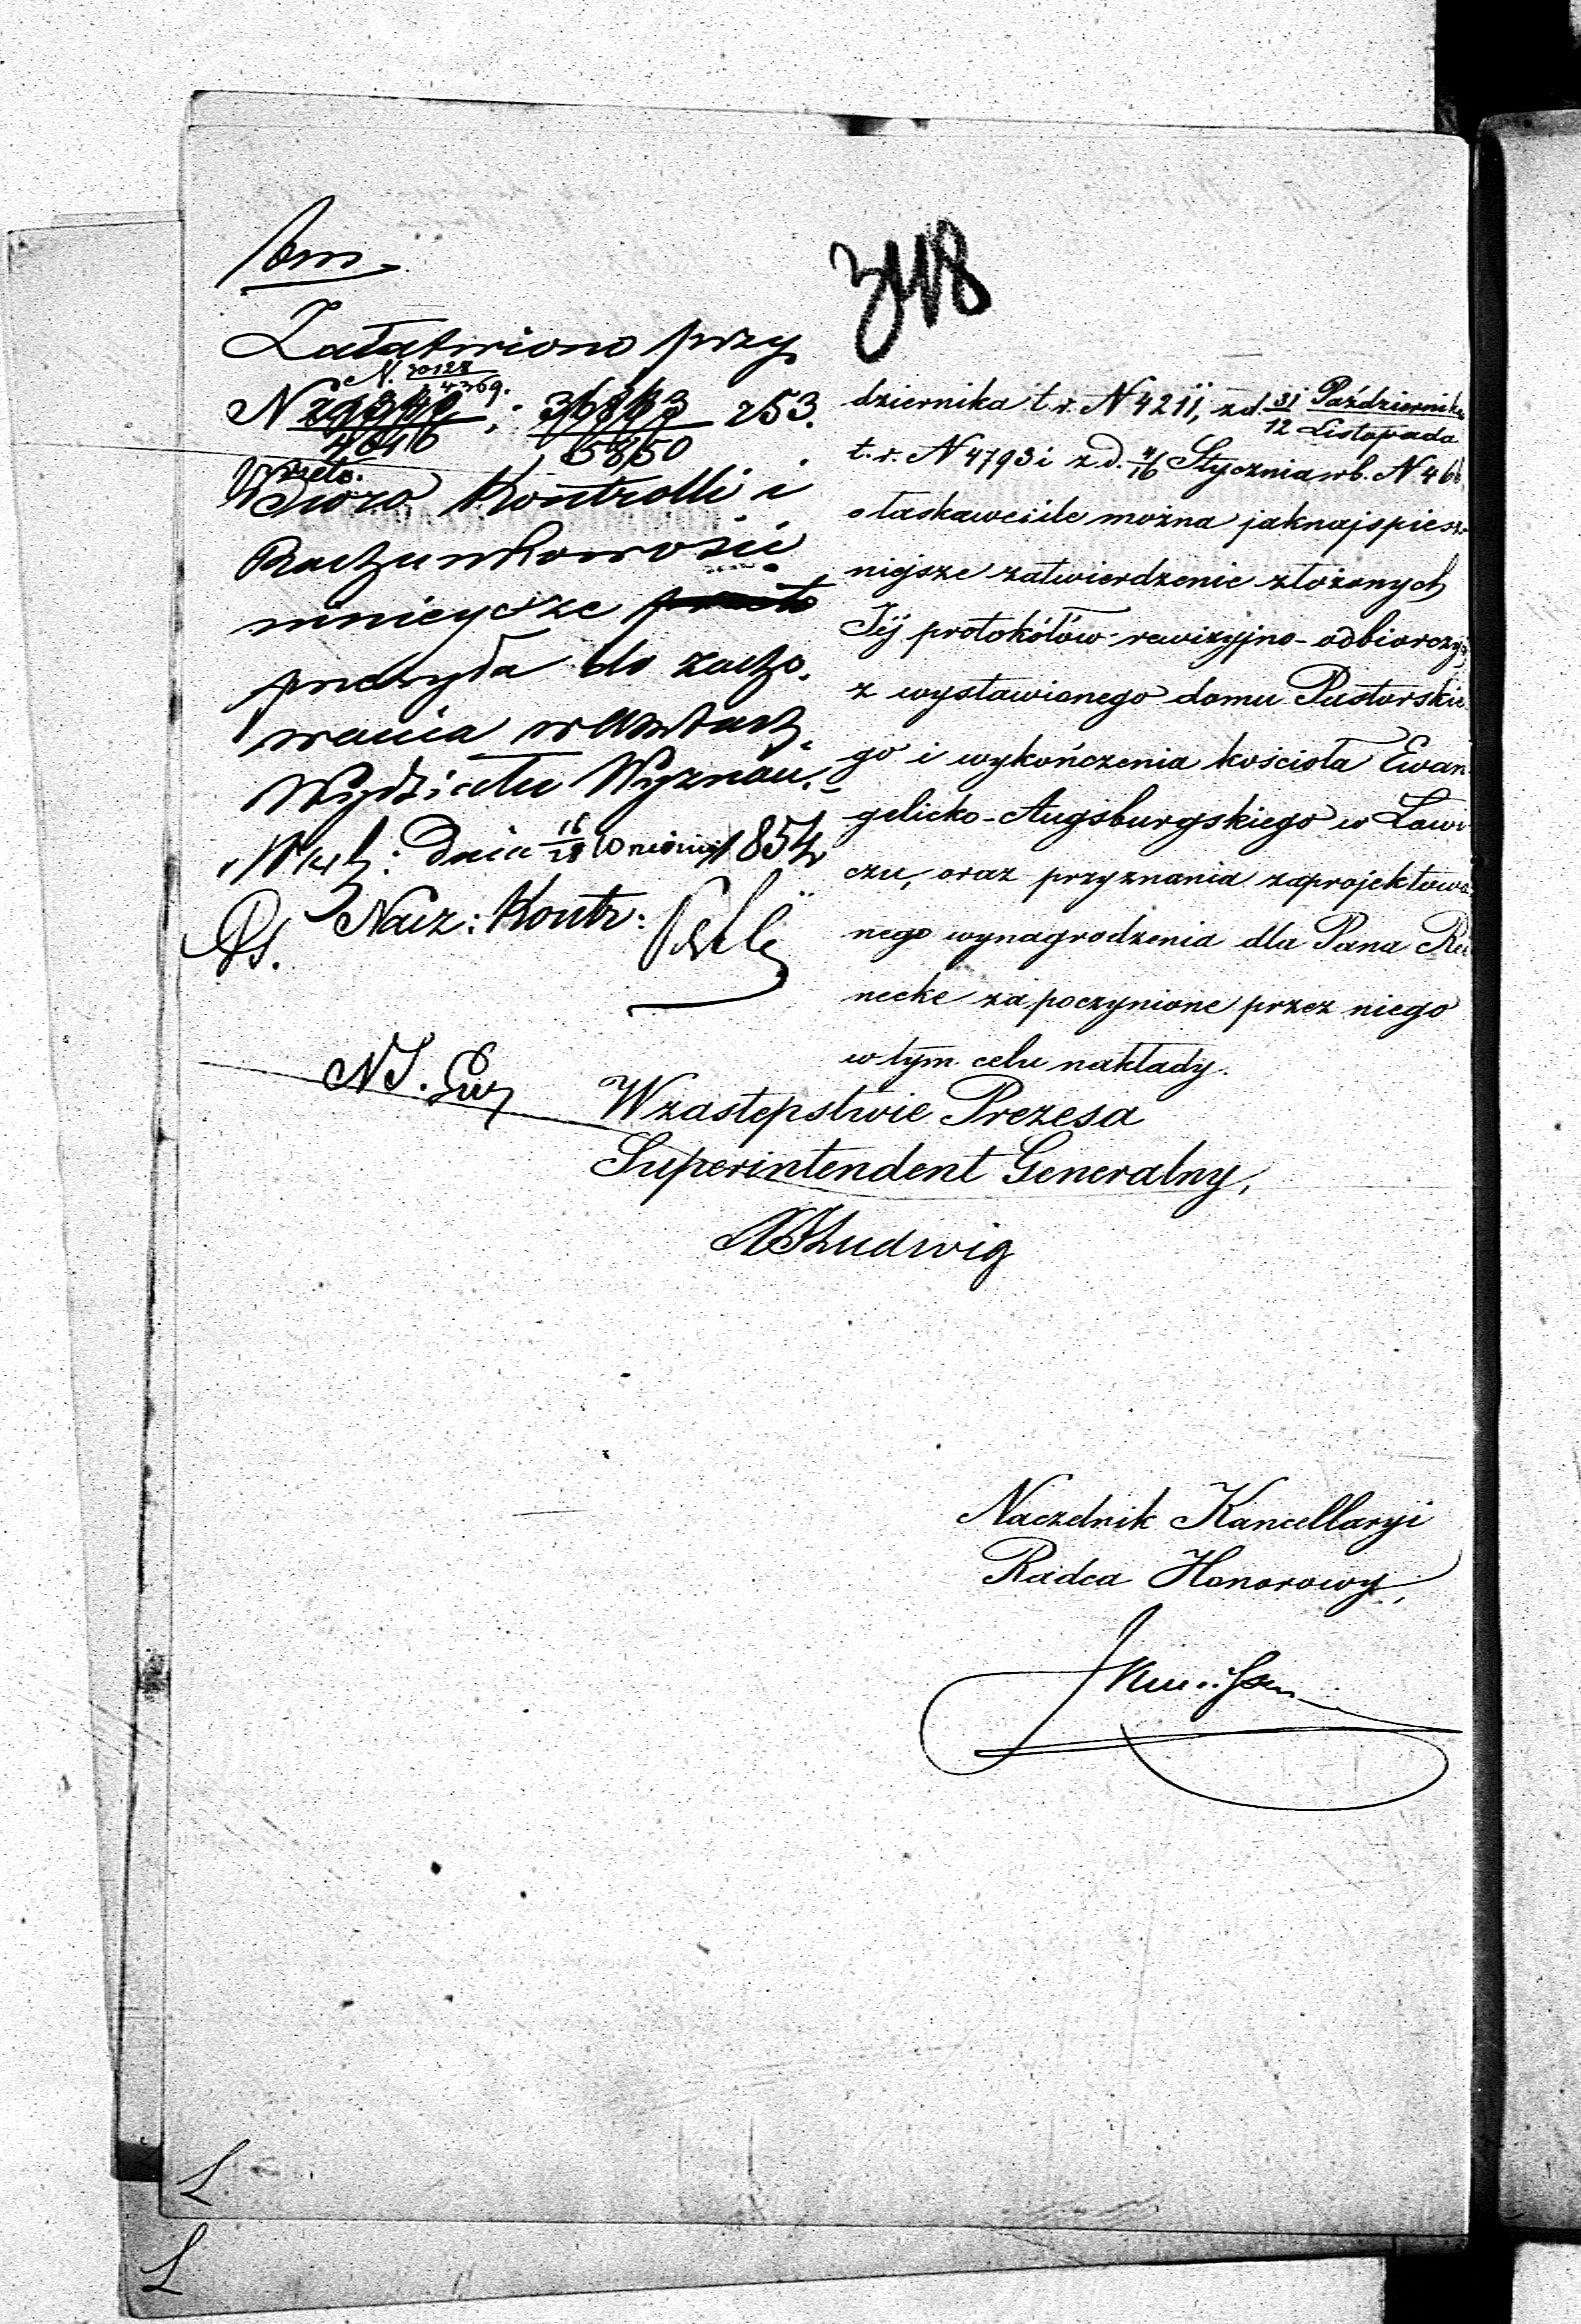 348
Załatwiono przy
N. 30128
4369.
N 29342 : 36863 r 53.
4646 5850
Biuro Kontrolli i
Rachunkowości
niniejsze
przesyła do zacho-
wania w Aktach
Wydziału Wyznań.
Dnia 16/28 1854
Nacz: Kontr:
dziernika t. r. N 4211, z d. 31 Października
12 Listopada
t. r. N 4793 i z d. 4/16 Stycznia r b. N 46
o łaskawe i ile można jaknajspiesz-
niejsze zatwierdzenie złożonych
Jéj protokółów rewizyjno-odbiorczych
z wystawionego domu Pastorskie
go i wykończenia kościoła Ewan
gelicko-Augsburgskiego w Łowi
czu, oraz przyznania zaprojektowa
nego wynagrodzenia dla Pana Rei
necke za poczynione przez niego
w tym celu nakłady.
W zastępstwie Prezesa
Superintendent Generalny,
Ludwig
Naczelnik Kancellaryi
Radca Honorowy,
L
L